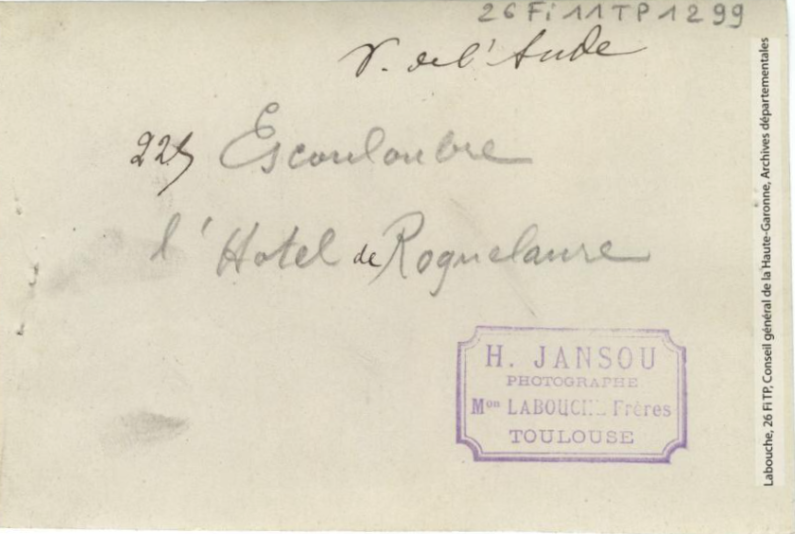 26 Fi 11 TP 1299
V. de l'Aude
225 Escouloubre
l'Hotel de Roquelaure
H. JANSOU
PHOTOGRAPHE
Mon LABOUCHE Frères
TOULOUSE
Labouche, 26 Fi TP, Conseil général de la Haute-Garonne, Archives départementales